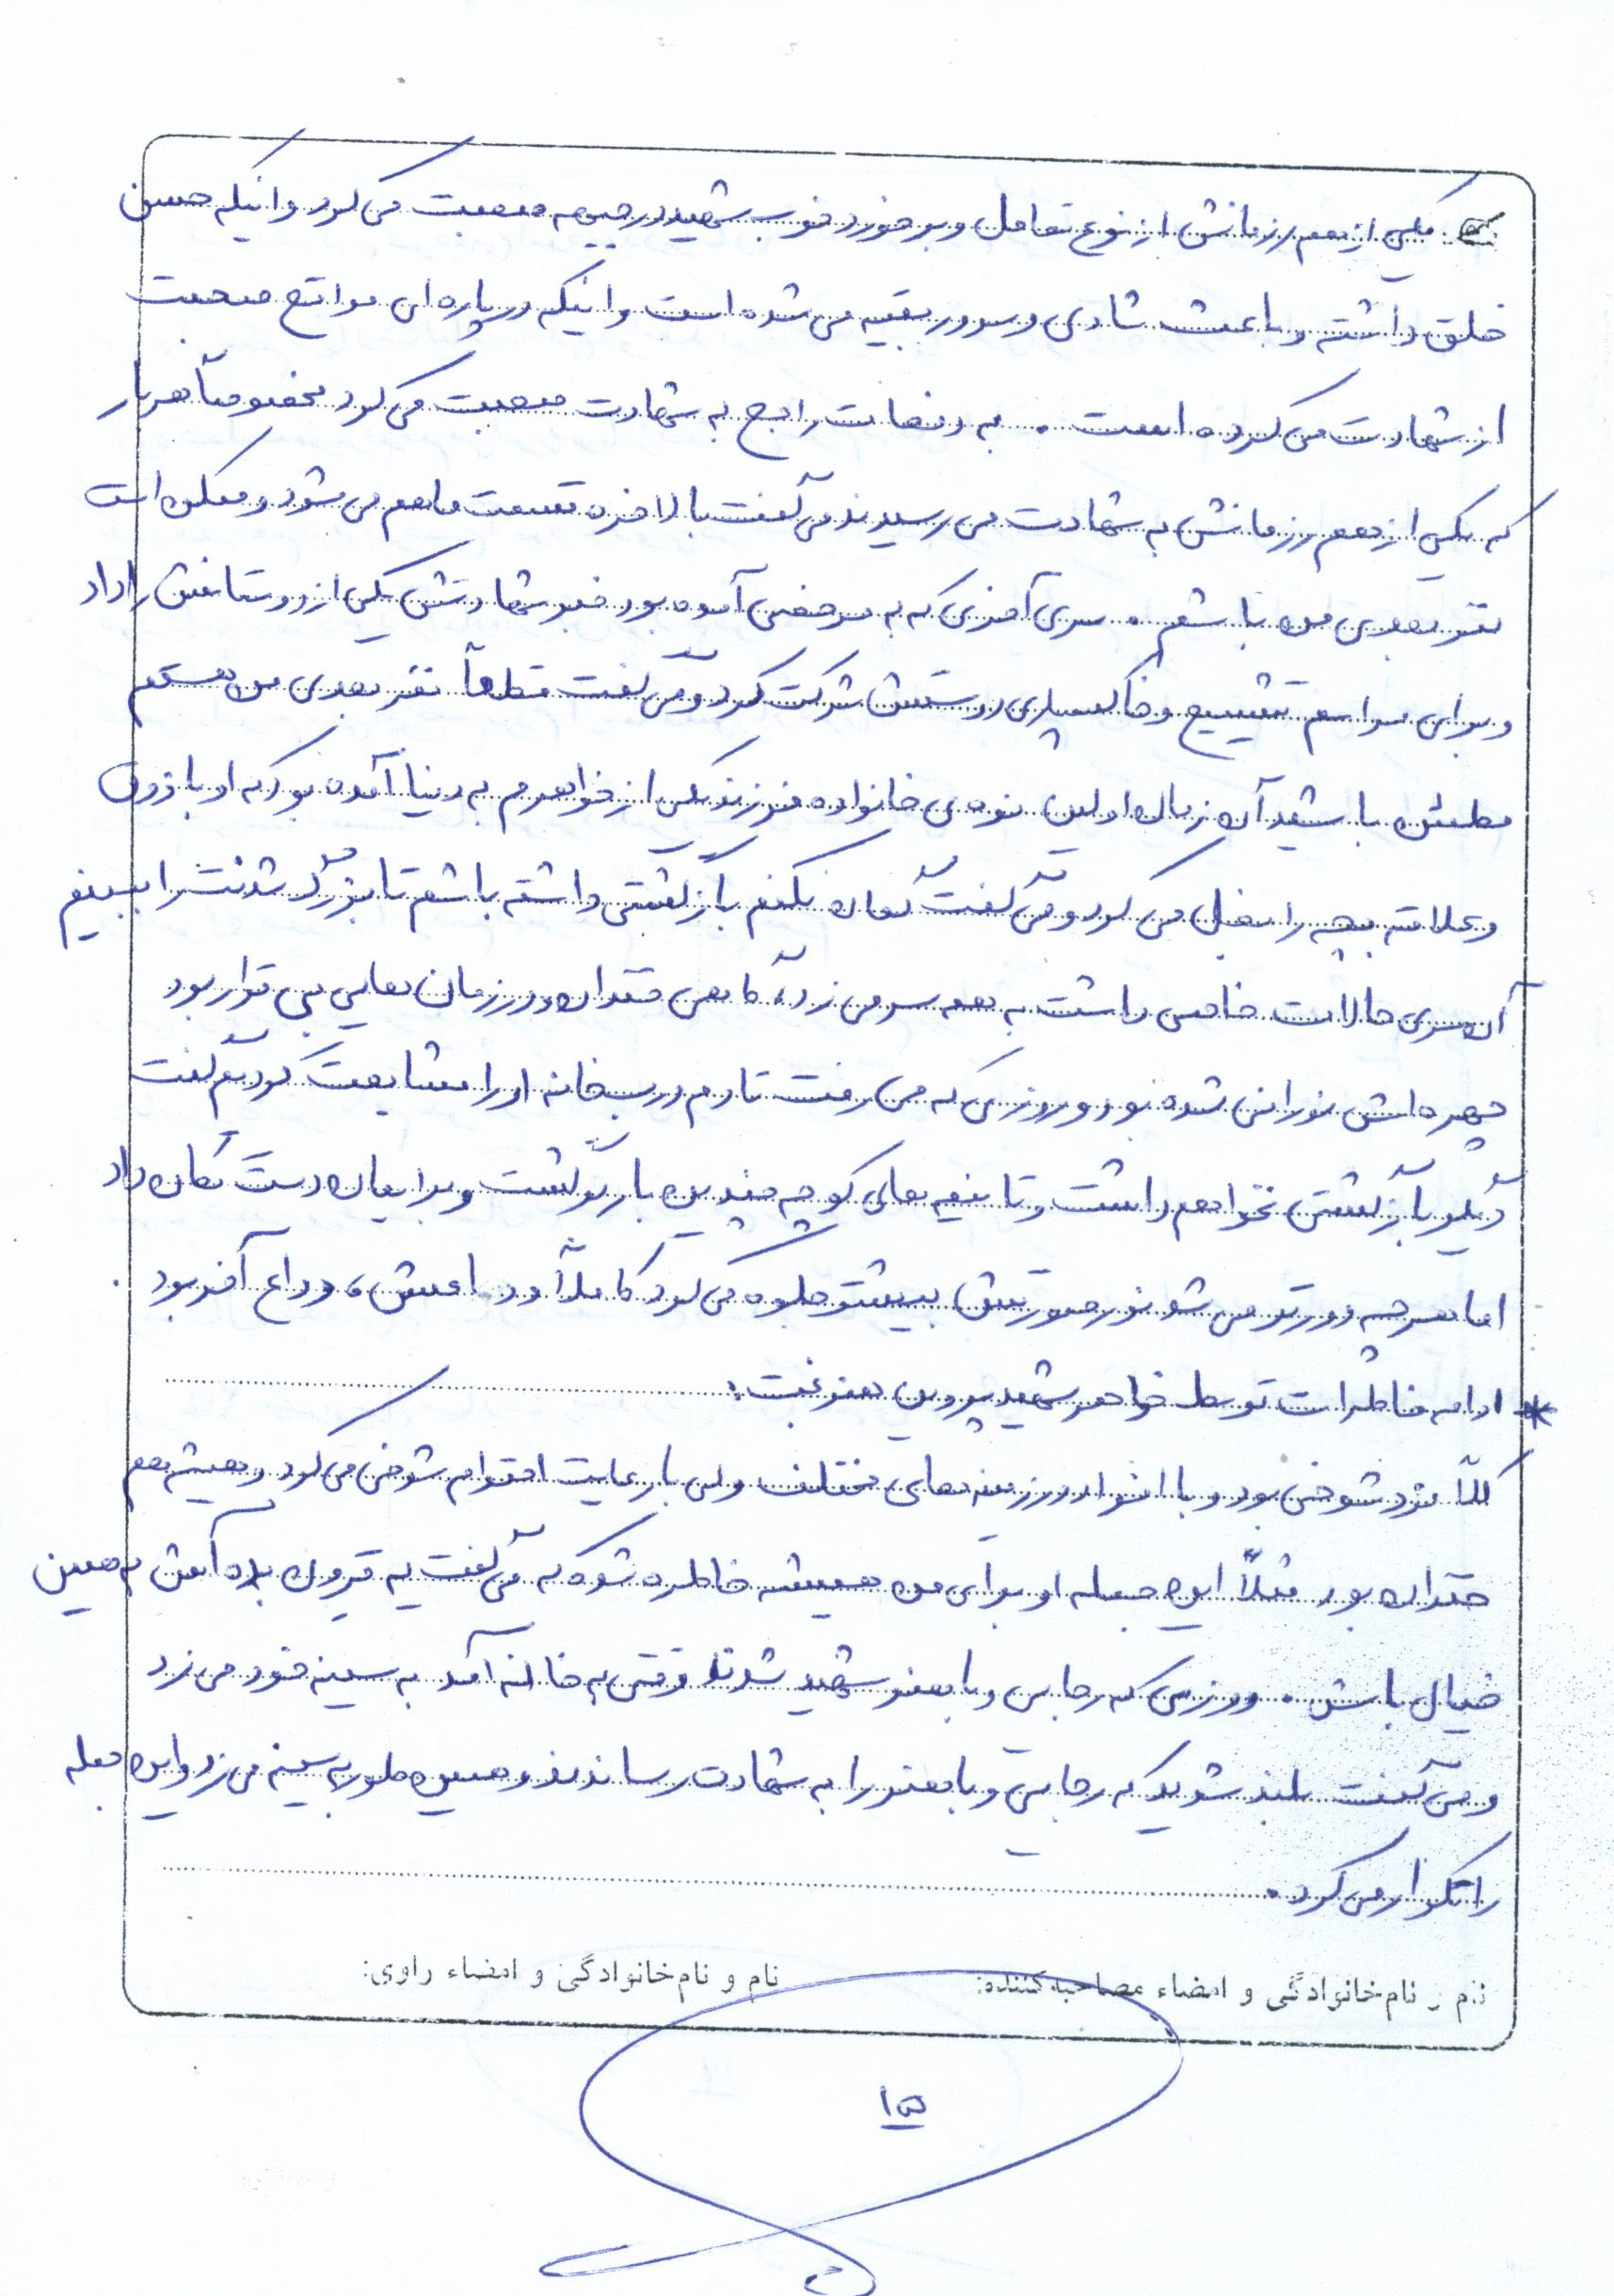 یکی از هم رزمانش از نوع تعامل و برخورد خوب شهید در جبهه صحبت می کرد و اینکه حسن
خلق داشته و باعث شادی و سرور بقیه می شده است و اینکه در پاره ای مواقع صحبت
از شهادت می کرده است . به دفعات راجع به شهادت صحبت می کرد مخصوصاً هر بار
که یکی از هم رزمانش به شهادت می رسیدند می گفت بالاخره قسمت ما هم می شود و ممکن است
نفر بعدی من باشم . سری آخری که به مرخصی آمده بود خبر شهادتش یکی از دوستانش را داد
و برای مراسم تشییع و خاکسپاری دوستش شرکت کرد و می گفت قطعاً نفر بعدی من هستم
مطمئن باشید آن زمان اولین نوه ی خانواده فرزند یکی از خواهرم به دنیا آمده بود که او با ذوق
و علاقه بچه را بغل می کرد و می گفت گمان نکنم بازگشتی داشته باشم تا بزرگ شدنت را ببینم
آن سری حالات خاصی داشت به همه سر می زد، گاهی خندان و در زمان هایی بی قرار بود
چهره اش نورانی شده بود و روزی که می رفت تا دم درب خانه او را مشایعت کردیم گفت
دیگر بازگشتی نخواهم داشت و تا نیمه های کوچه چندین بار برگشت و برایمان دست تکان داد
اما هر چه دورتر می شد نور صورتش بیشتر جلوه می کرد کاملاً وداعش، وداع آخر بود .
* ادامه خاطرات توسط خواهر شهید پروین هنر :
کلاً فرد شوخی بود و با افراد در زمینه های مختلف ولی با رعایت احترام شوخی می کرد و همیشه هم
خندان بود مثلاً این جمله او برای من همیشه خاطره شده که می گفت یه قرون بده آش به همین
خیال باش . روزی که رجایی و باهنر شهید شدند وقتی به خانه آمد به سینه خود می زد
و می گفت بلند شوید که رجایی و باهنر را به شهادت رساندند و همین طور به سینه می زد و این جمله
را تکرار می کرد .
نام و نام خانوادگی و امضاء مصاحبه کننده: نام و نام خانوادگی و امضاء راوی:
۱۵